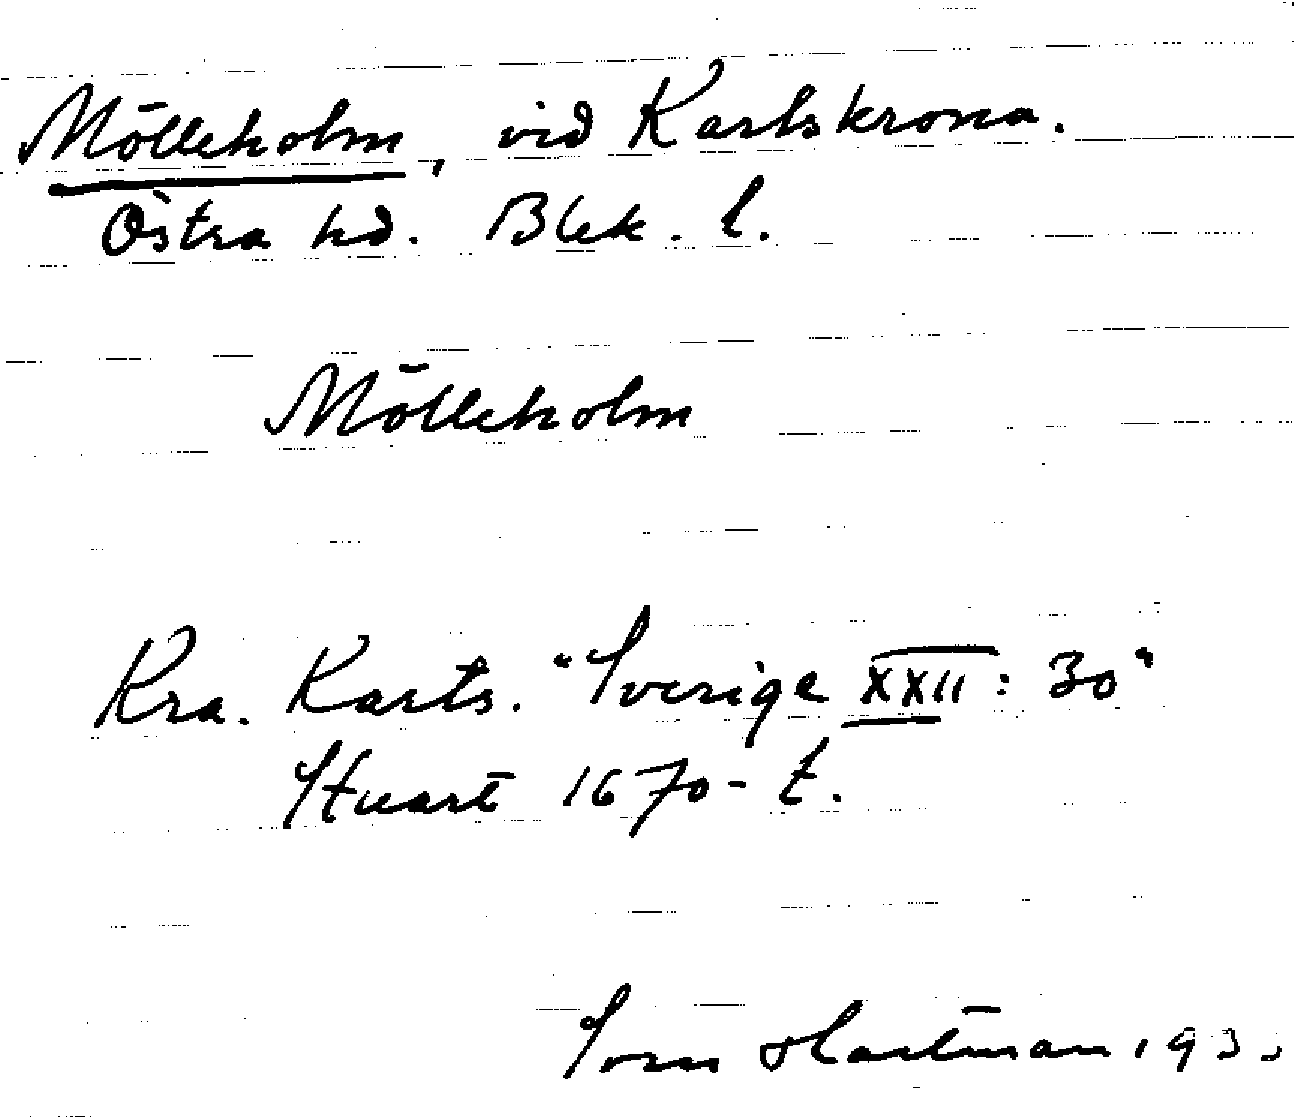 Mölleholm, vid Karlskrona.
Östra hd. Blek. l.
Mölleholm
Kra. Karts. "Sverige XXII: 30"
Stuart 1670-t.
Sven Hartman